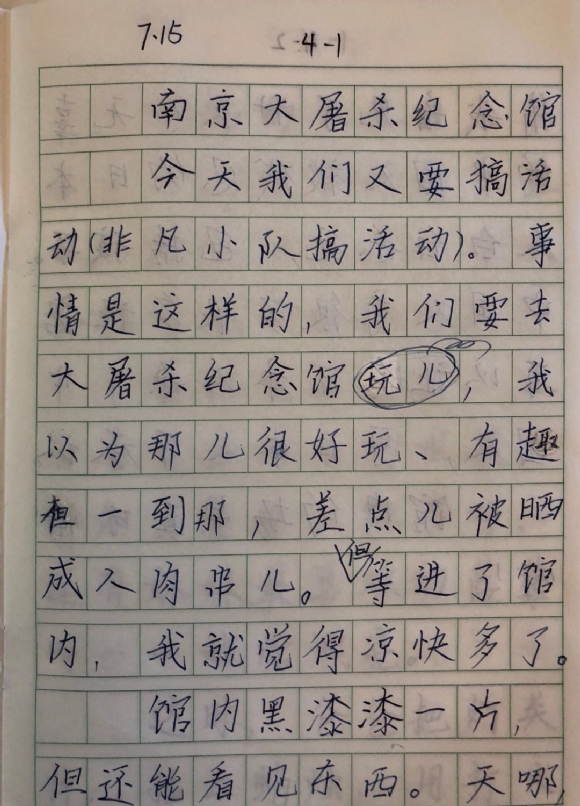 7.15 4-1
南京大屠杀纪念馆
今天我们又要搞活
动(非凡小队搞活动)。事
情是这样的,我们要去
大屠杀纪念馆玩儿,我
以为那儿很好玩、有趣
但一到那,差点儿被晒
成人肉串儿。但等进了馆
内,我就觉得凉快多了。
馆内黑漆漆一片,
但还能看见东西。天哪,